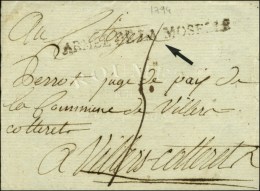 1794
Au Citoyen
ARMÉE DE LA MOSELLE
Perrot juge de paix de
la Commune de Villers
cotterets
a Villers-cotterets